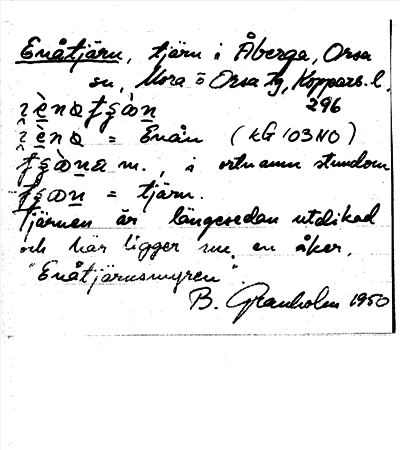 Enåtjärn, tjärn i Åberga, Orsa
sn, Mora o Orsa tg, Koppars. l.
296
= Enån (kG 103 NO)
m., i ortnamn stundom
= tjärn.
Tjärnen är längesedan utdikad
och här ligger nu en åker,
"Enåtjärnsmyren".
B. Granholm 1950